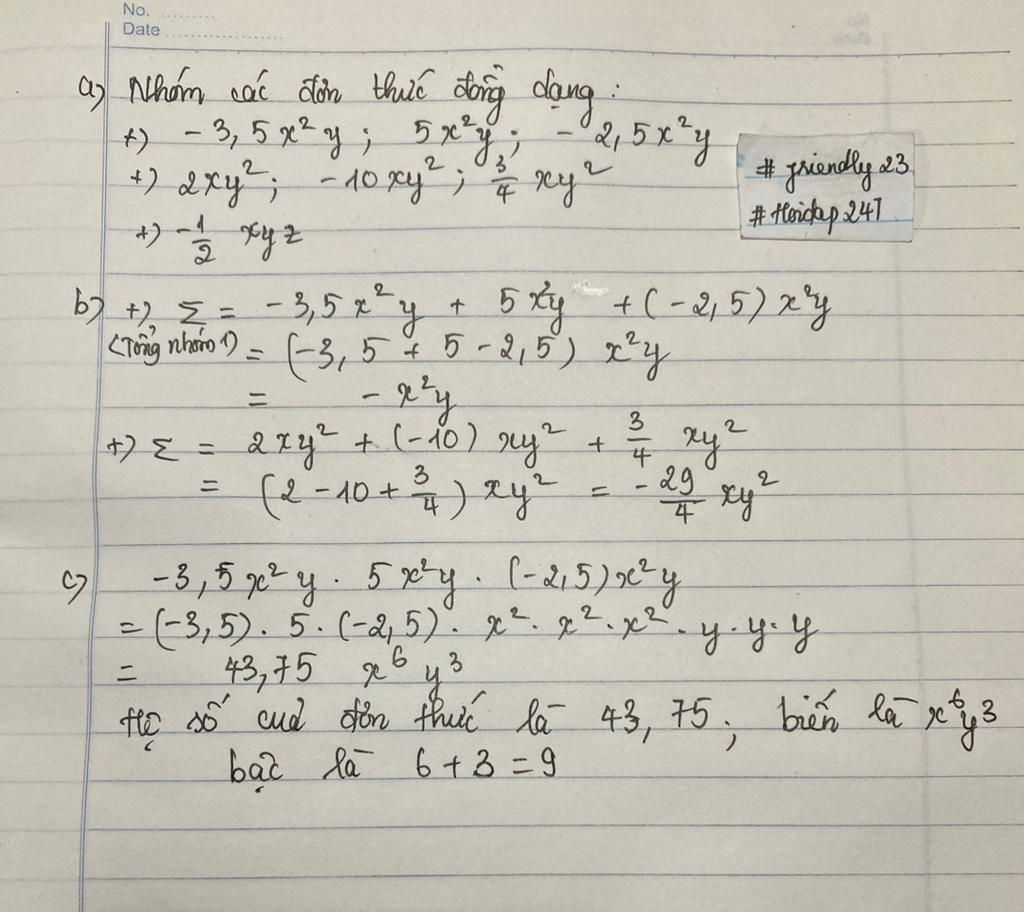 No. .........
Date ...................
a) Nhóm các đơn thức đồng dạng :
+) - 3,5 x² y ; 5 x² y ; - 2,5 x² y
+) 2xy² ; - 10 xy² ; 3/4 xy²
+) - 1/2 xyz
# friendly 23
# Hoidap 247
b) +) Σ = - 3,5 x² y + 5 x² y + ( - 2,5 ) x² y
(Tổng nhóm 1) = ( -3, 5 + 5 - 2,5 ) x² y
= - x² y
+) Σ = 2 xy² + (-10) xy² + 3/4 xy²
= ( 2 - 10 + 3/4 ) xy² = - 29/4 xy²
c) -3,5 x² y . 5 x² y . (-2,5) x² y
= (-3,5) . 5 . (-2,5) . x² . x² . x² . y . y . y
= 43,75 x⁶ y³
Hệ số của đơn thức là 43,75 ; biến là x⁶y³
bậc là 6 + 3 = 9